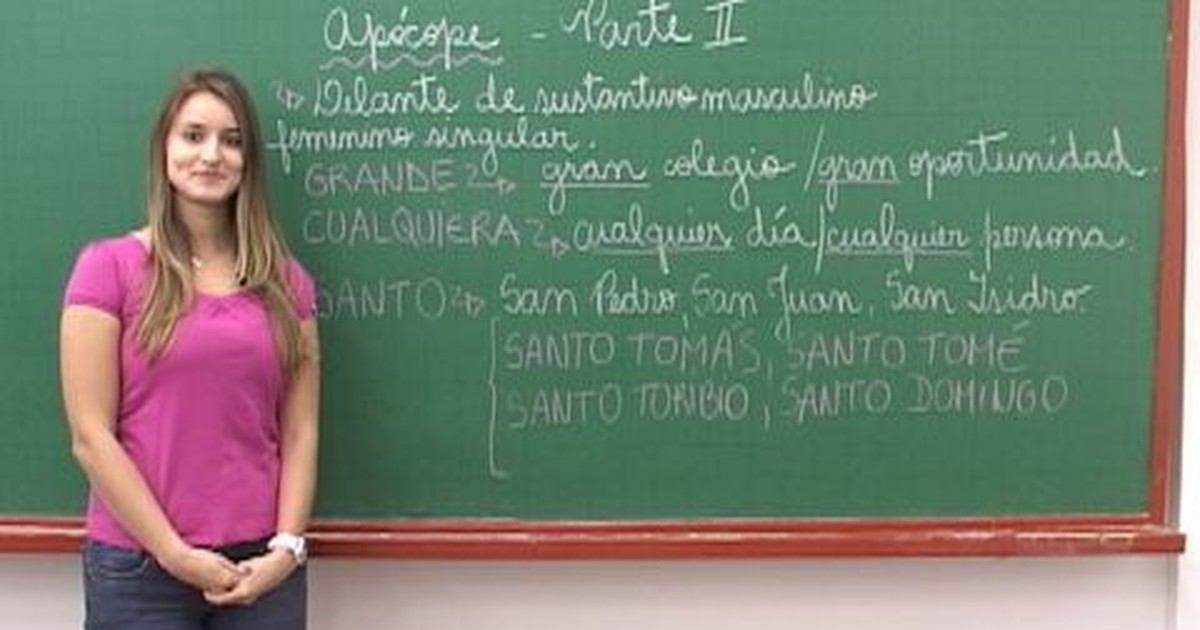 Apócope - Parte II
Delante de sustantivo masculino
femenino singular.
GRANDE → gran colegio / gran oportunidad.
CUALQUIERA → cualquier día / cualquier persona.
SANTO → San Pedro, San Juan, San Isidro.
SANTO TOMÁS, SANTO TOMÉ
SANTO TORIBIO, SANTO DOMINGO